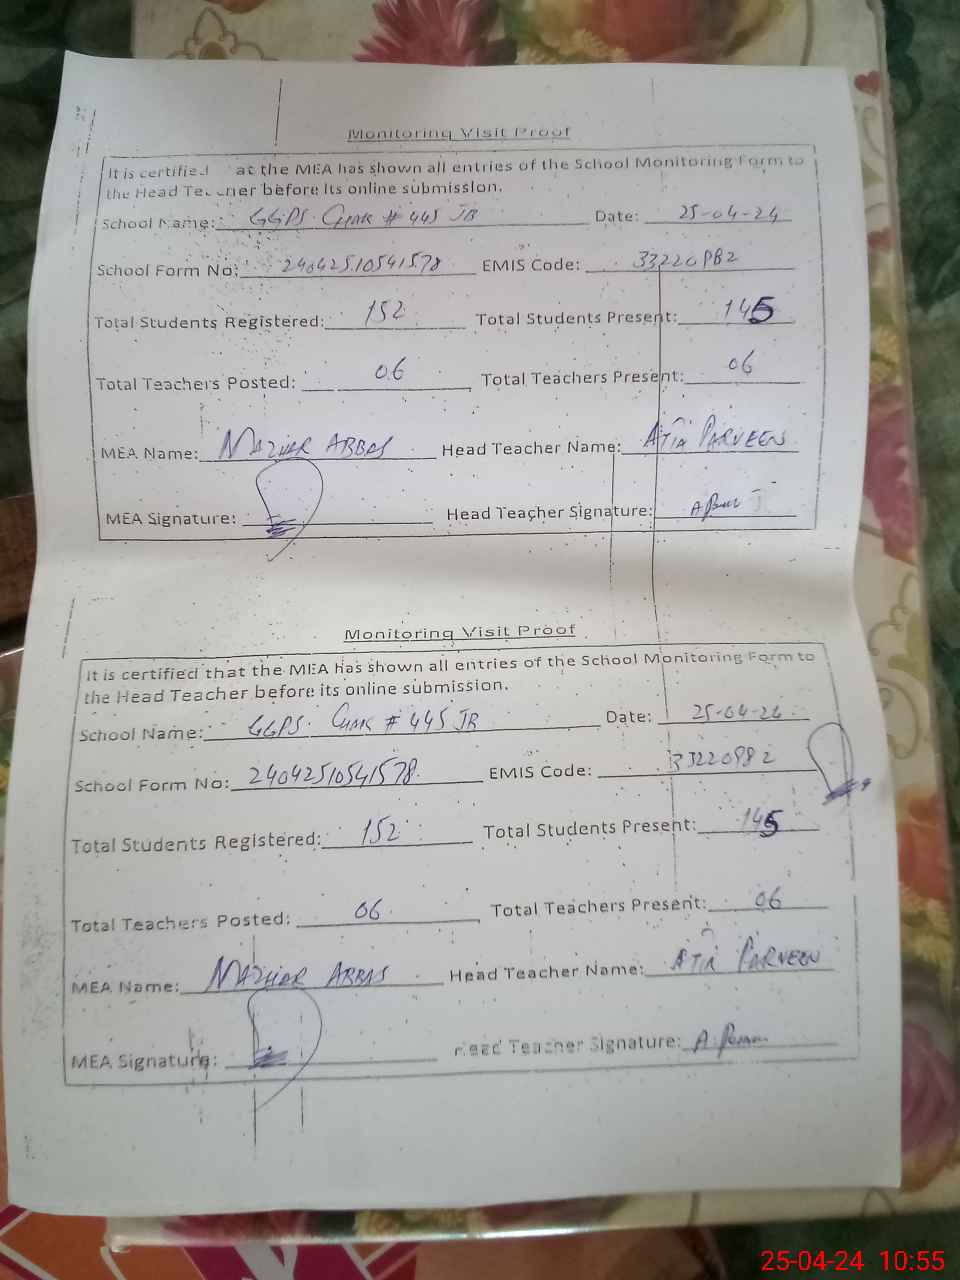 Monitoring Visit Proof
It is certified at the MEA has shown all entries of the School Monitoring Form to
the Head Teacher before its online submission.
School Name: GGPS. Chak # 445 JB Date: 25-04-24
School Form No: 24042510541578 EMIS Code: 33220982
Total Students Registered: 152 Total Students Present: 145
Total Teachers Posted: 06 Total Teachers Present: 06
MEA Name: MAZHAR ABBAS Head Teacher Name: ATIA PARVEEN
MEA Signature: Head Teacher Signature:
Monitoring Visit Proof
It is certified that the MEA has shown all entries of the School Monitoring Form to
the Head Teacher before its online submission.
School Name: GGPS. Chak # 445 JB Date: 25-04-24
School Form No: 24042510541578. EMIS Code: 33220982
Total Students Registered: 152 Total Students Present: 145
Total Teachers Posted: 06 Total Teachers Present: 06
MEA Name: MAZHAR ABBAS Head Teacher Name: ATIA PARVEEN
MEA Signature: Head Teacher Signature:
25-04-24 10:55